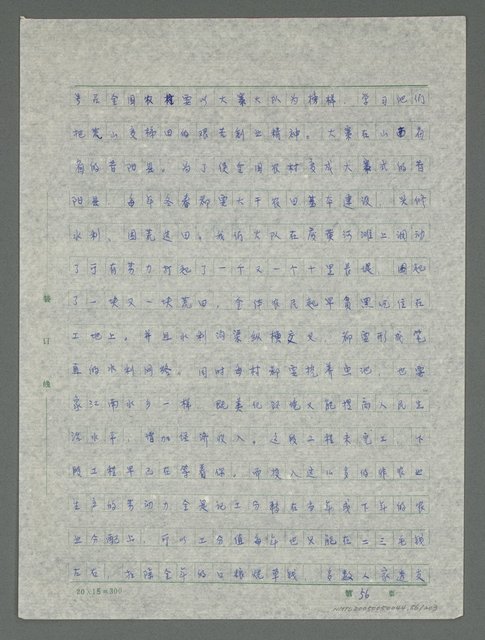 号召全国农村要以大寨大队为榜样，学习他们
把荒山变梯田的艰苦创业精神。大寨在山西省
的昔阳县。为了使全国农村变成大寨式的昔
阳县，每年冬春都要大干农田基本建设，兴修
水利、围荒造田。我们大队在废黄河滩上调动
了所有劳力打起了一个又一个十里长堤，围起
了一块又一块荒田，全体农民起早贪黑吃住在
工地上。并且水利沟渠纵横交叉，都要形成笔
直的水利网络。同时每村都要挖养鱼池，也要
象江南水乡一样，既美化环境又能提高人民生
活水平，增加经济收入。这段工程未完工，下
段工程早已在等着你。而投入这么多的非农业
生产的劳动力全是记工分摊在当年或下年的农
业分配上，所以工分值每年也只能在二三毛钱
左右，扣除全年的口粮烧草钱，多数人家透支
20×15=300
第 56 页
装
订
线